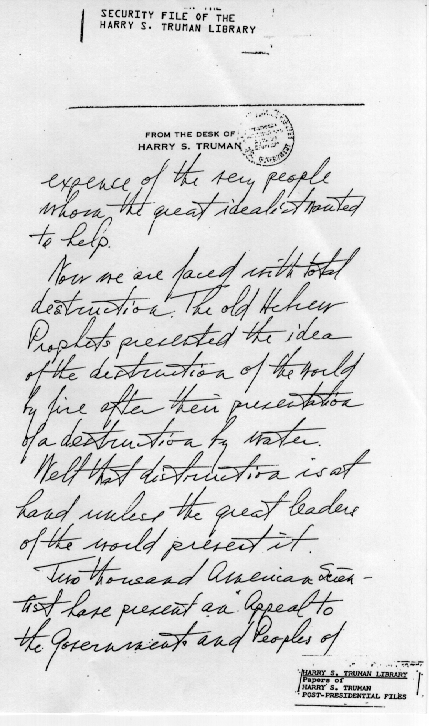 SECURITY FILE OF THE
HARRY S. TRUMAN LIBRARY
FROM THE DESK OF
HARRY S. TRUMAN
expence of the very people
whom the great idealist wanted
to help.
Now we are faced with total
destruction. The old Hebrew
Prophets presented the idea
of the destruction of the world
by fire after their presentation
of a destruction by water.
Well that destruction is at
hand unless the great leaders
of the world prevent it.
Two thousand American Scien-
tist have present an "Appeal to
the Governments and Peoples of
HARRY S. TRUMAN LIBRARY
Papers of
HARRY S. TRUMAN
POST-PRESIDENTIAL FILES